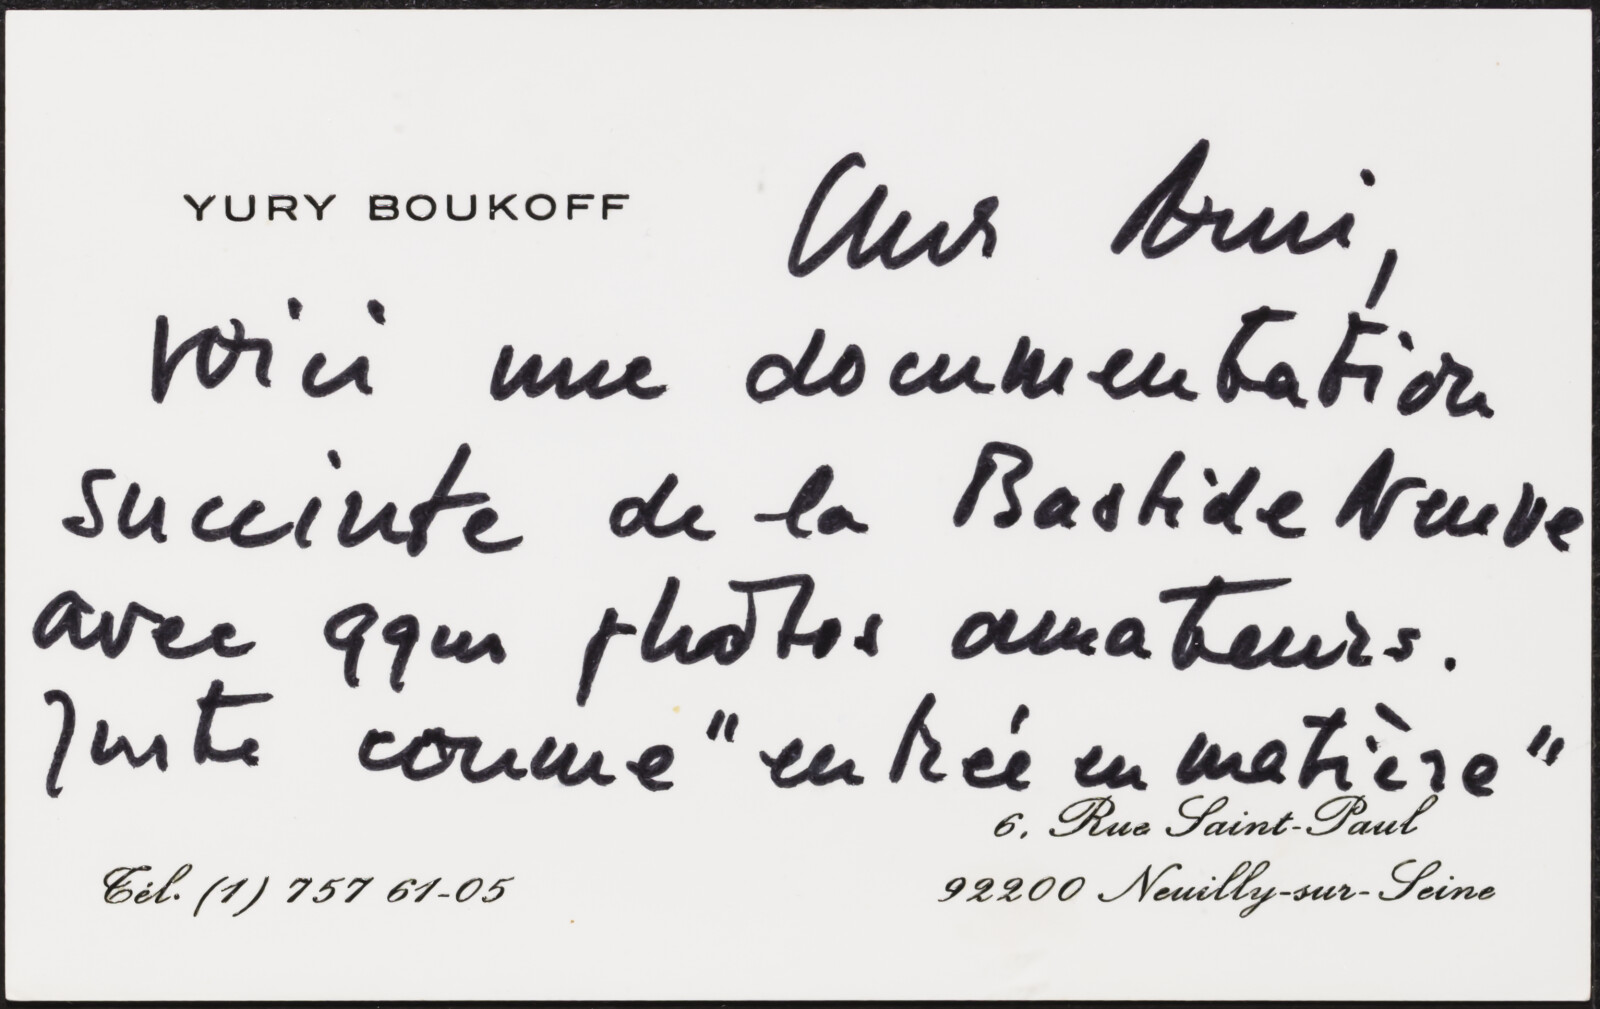 YURY BOUKOFF
Cher Ami,
voici une documentation
succinte de la Bastide Neuve
avec qqes photos amateurs.
Juste comme "entrée en matière"
6, Rue Saint-Paul
Tél. (1) 757 61-05
92200 Neuilly-sur-Seine